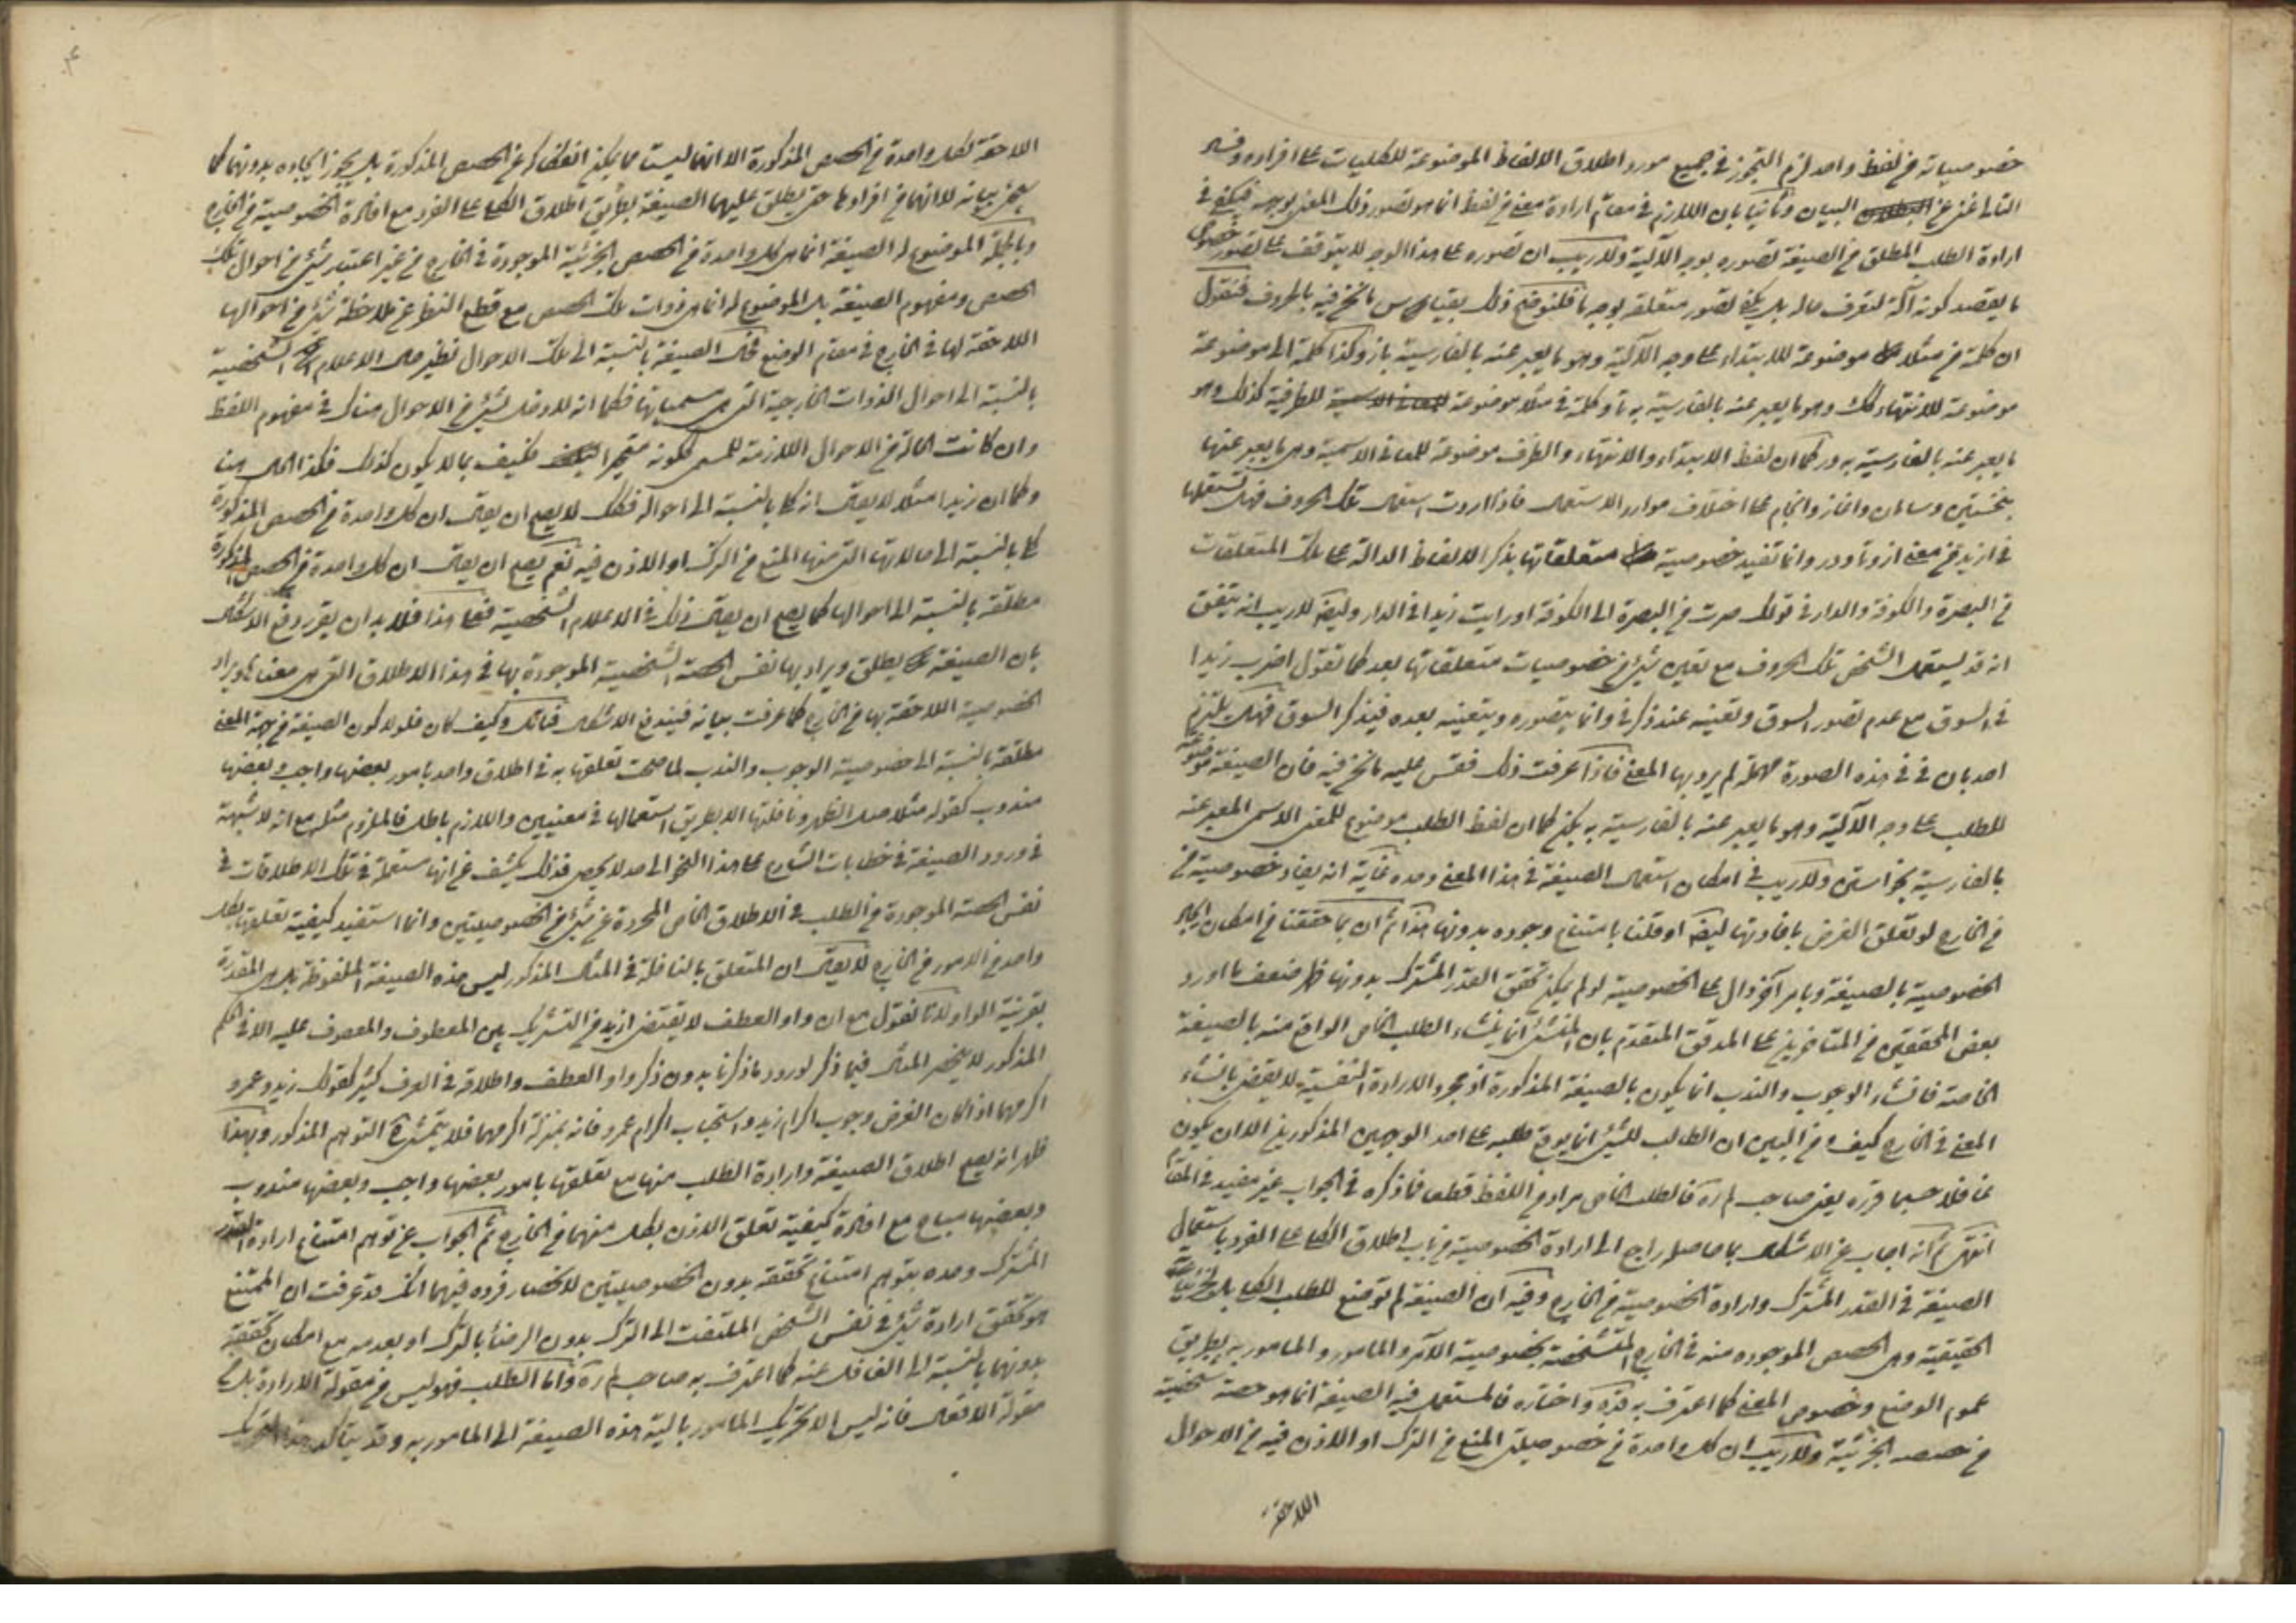 خصوصياته في لفظ واحد لزم التجوز في جميع موارد اطلاق الالفاظ الموضوعة للكليات على افراده وفساد
التالي غني عن البيان وثانيا بان اللازم في مقام ارادة معنى من لفظ انما هو تصور ذلك المعنى بوجه فيكفي في
ارادة الطلب المطلق من الصيغة تصوره بوجه الآلية ولا ريب ان تصوره على هذا الوجه لا يتوقف على تصور خصوص
ما يقصد كونه آلة لتعرف حاله بل يكفي تصور متعلقه بوجه ما فلنوضح ذلك بقياس ما نحن فيه بالحروف فنقول
ان كلمة من مثلا موضوعة للابتداء على وجه الآلية وهو ما يعبر عنه بالفارسية باز وكذا كلمة الى موضوعة
موضوعة للانتهاء كك وهو ما يعبر عنه بالفارسية به تا وكلمة في مثلا موضوعة للظرفية كذلك وهو
ما يعبر عنه بالفارسية به در كما ان لفظ الابتداء والانتهاء والظرف موضوعة للمعاني الاسمية وهي ما يعبر عنها
بنخستين وسامان واغاز وانجام على اختلاف موارد الاستعمال فاذا اردت استعمال تلك الحروف فهل تستعملها
في ازيد من معنى از وتا ودر وانما تفيد خصوصية متعلقاتها بذكر الالفاظ الدالة على تلك المتعلقات
من البصرة والكوفة والدار في قولك سرت من البصرة الى الكوفة او رايت زيدا في الدار وايضا لا ريب انه يتفق
انه قد يستعمل الشخص تلك الحروف مع تعين شئ من خصوصيات متعلقاتها بعد كما تقول اضرب زيدا
في السوق مع عدم تصور السوق وتعينه عند ذكر في وانما يتصوره ويتعينه بعده فيذكر السوق فهل يلتزم
احد بان في في هذه الصورة مهملة لم يرد بها المعنى فاذا عرفت ذلك فقس عليه ما نحن فيه فان الصيغة موضوعة
للطلب على وجه الآلية وهو ما يعبر عنه بالفارسية به بكن كما ان لفظ الطلب موضوع للمعنى الاسمي المعبر عنه
بالفارسية بخواستن ولا ريب في امكان استعمال الصيغة في هذا المعنى وحده غاية انه يفاد خصوصيته في
في الخارج لو تعلق الغرض بافادتها ايضا او قلنا بامتناع وجوده بدونها هذا ثم ان بما حققنا من امكان ايجاد
الخصوصية بالصيغة وبامر آخر دال على الخصوصية لو لم يمكن تحقق القدر المشترك بدونها ظهر ضعف ما اورد
بعض المحققين من المتاخرين على المدقق المتقدم بان المنشئ انما ينشاء الطلب الخاص الواقع منه بالصيغة
الخاصة فانشاء الوجوب والندب انما يكون بالصيغة المذكورة اذ مجرد الارادة النفسية لا يقضي بانشاء
المعنى في الخارج كيف ومن البين ان الطالب للشئ انما يوقع طلبه على احد الوجهين المذكورين الا ان يكون
غافلا حسبما قرره يعني صاحب لم ره فالطلب الخاص مراد من اللفظ قطعا فما ذكره في الجواب غير مفيد في المقام
انتهى ثم انه اجاب عن الاشكال بما حاصله راجع الى ارادة الخصوصية من باب اطلاق الكلي على الفرد باستعمال
الصيغة في القدر المشترك وارادة الخصوصية من الخارج وفيه ان الصيغة لم توضع للطلب الكلي بل لجزئياته
الحقيقية وهي الحصص الموجودة منه في الخارج المتشخصة بخصوصية الآمر والمامور والمامور به بطريق
عموم الوضع وخصوص المعنى كما اعترف به قده واختاره فالمستعمل فيه الصيغة انما هو حصة شخصية
من حصصه الجزئية ولا ريب ان كل واحدة من خصوصيتي المنع من الترك او الاذن فيه من الاحوال
اللاحقة
اللاحقة لكل واحدة من الحصص المذكورة الا انها ليست مما يمكن انفكاكه عن الحصص المذكورة بل يجوز ايجاده بدونها كما
يجيء بيانه لا انهما من افرادها حتى يطلق عليهما الصيغة بطريق اطلاق الكلي على الفرد مع افادة الخصوصية من الخارج
وبالجملة الموضوع له الصيغة انما هي كل واحدة من الحصص الجزئية الموجودة في الخارج من غير اعتبار شئ من احوال تلك
الحصص ومفهوم الصيغة بل الموضوع له انما هي ذوات تلك الحصص مع قطع النظر عن ملاحظة شئ من احوالها
اللاحقة لها في الخارج في مقام الوضع فحال الصيغة بالنسبة الى تلك الاحوال نظير حال الاعلام الشخصية
بالنسبة الى احوال الذوات الخارجية التي هي مسمياتها فكما انه لا دخل لشئ من الاحوال هناك في مفهوم اللفظ
وان كانت الحالة من الاحوال اللازمة للمسمى ككونه متحيزا فكيف بما لا يكون كذلك فكذا الحال هنا
وكما ان زيدا مثلا لا يقال انه كلي بالنسبة الى احواله فكك لا يصح ان يقال ان كل واحدة من الحصص المذكورة
كلي بالنسبة الى حالاتها التي منها المنع من الترك او الاذن فيه نعم يصح ان يقال ان كل واحدة من الحصص المذكورة
مطلقة بالنسبة الى احوالها كما يصح ان يقال ذلك في الاعلام الشخصية فعلى هذا فلا بد ان يقرر دفع الاشكال
بان الصيغة يطلق ويراد بها نفس الحصة الشخصية الموجودة بها في هذا الاطلاق التي هي معناه ويراد
الخصوصية اللاحقة بها من الخارج كما عرفت بيانه فيندفع الاشكال فتامل وكيف كان فلو لا كون الصيغة من جهة المعنى
مطلقة بالنسبة الى خصوصية الوجوب والندب لما صحت تعلقها به في اطلاق واحد بامور بعضها واجب وبعضها
مندوب كقوله مثلا صل الظهر ونافلتها الا بطريق استعمالها في معنيين واللازم باطل فالملزوم مثله مع انه لا شبهة
في ورود الصيغة في خطابات الشارع على هذا النحو الى حد لا يحصى فذلك يكشف عن انها مستعملة في تلك الاطلاقات في
نفس الحصة الموجودة من الطلب في الاطلاق الخاص المجردة عن شئ من الخصوصيتين وانما استفيد كيفية تعلقها بكل
واحد من الامور من الخارج لا يقال ان المتعلق بالنافلة في المثال المذكور ليس هذه الصيغة الملفوظة بل هي المقدرة
بقرينة الواو لانا نقول مع ان واو العطف لا يقتضي ازيد من التشريك بين المعطوف والمعطوف عليه الا في الحكم
المذكور لا ينحصر المثال فيما ذكر لورود ما ذكرنا بدون ذكر واو العطف واطلاقه في العرف كثير كقولك زيد وعمرو
اكرمهما اذا كان الغرض وجوب اكرام زيد واستحباب اكرام عمرو فانه بمنزلة اكرمهما فلا يتمشى التوهم المذكور وبهذا
ظهر انه يصح اطلاق الصيغة وارادة الطلب منها مع تعلقها بامور بعضها واجب وبعضها مندوب
وبعضها مباح مع افادة كيفية تعلق الاذن بكل منهما من الخارج ثم الجواب عن توهم امتناع ارادة القدر
المشترك وحده بتوهم امتناع تحققه بدون الخصوصيتين لانحصار فرده فيهما انك قد عرفت ان الممتنع
هو تحقق ارادة شئ في نفس الشخص الملتفت الى الترك بدون الرضا بالترك او بعدمه مع امكان تحققه
بدونهما بالنسبة الى الغافل عنه كما اعترف به صاحب لم ره واما الطلب فهو ليس من مقولة الارادة بل من
مقولة الافعال فانه ليس الا تحريك المامور بالية هذه الصيغة الى المامور به وقد يتاكد هذا التحريك